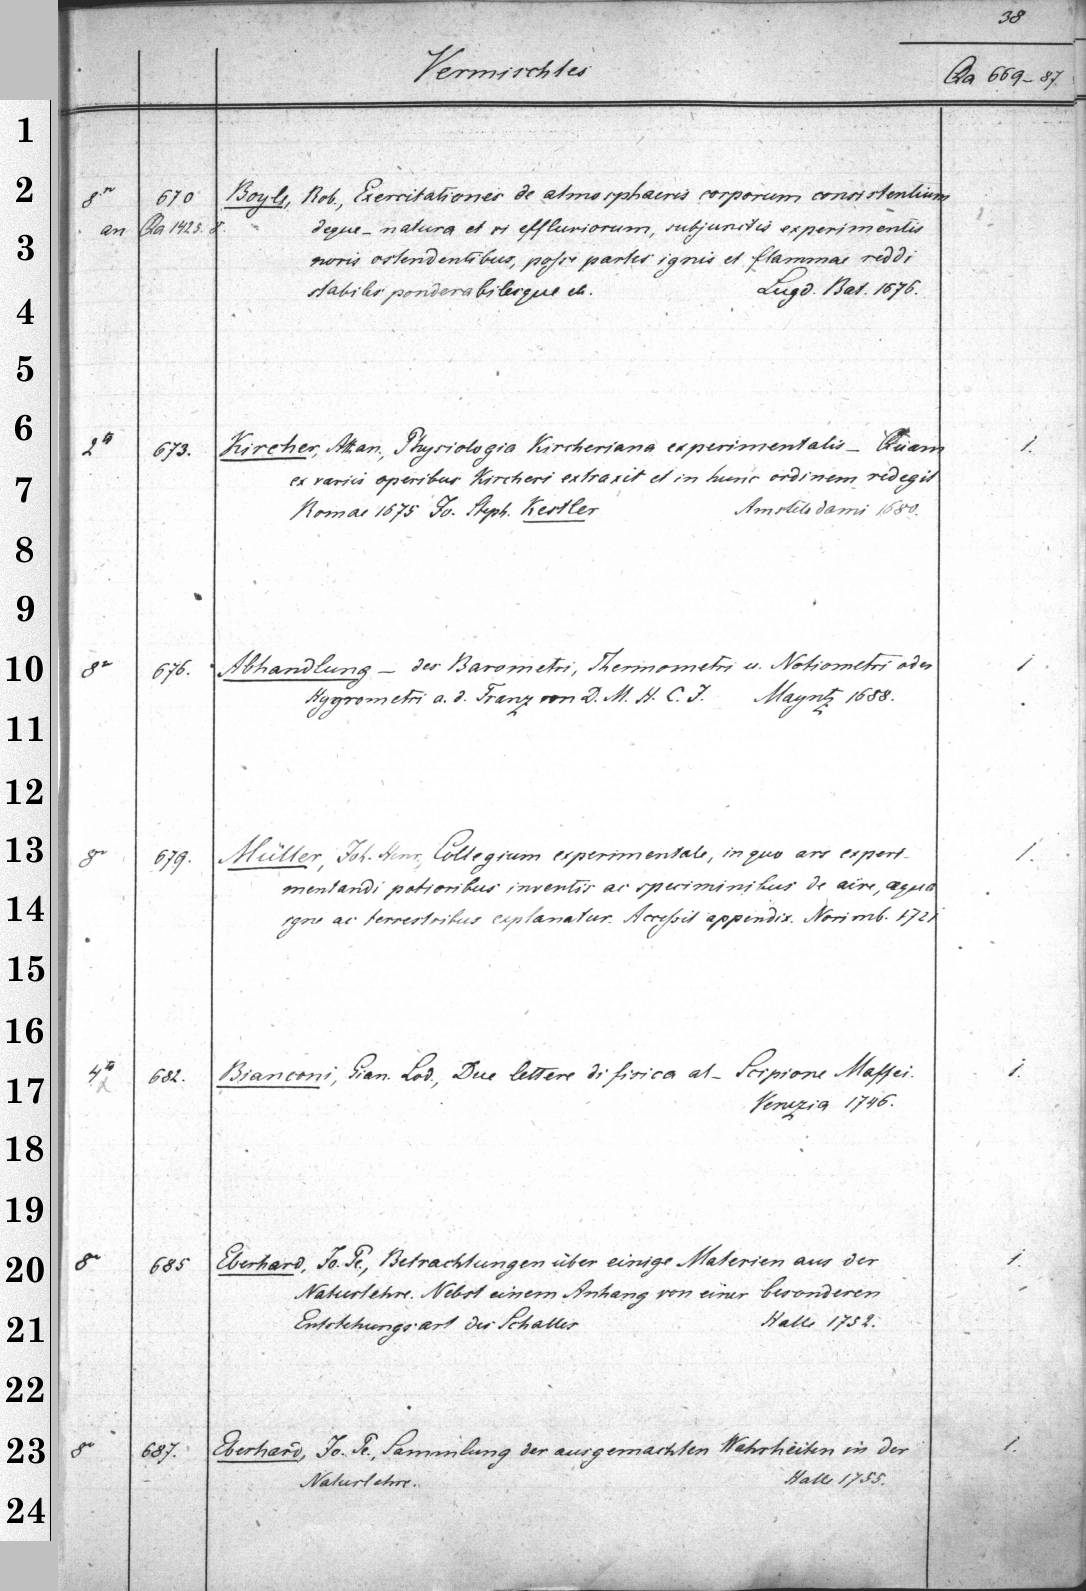 38
Vermischtes Qa 669-87.
1
2
8º 670 Boyle, Rob., Exercitationes de atmosphaeris corporum consistentium
an Qa 1425. 8. deque - natura et vi effluviorum, subjunctis experimentis
3
novis ostendentibus, posse partes ignis et flammae reddi
4
stabiles ponderabilesque etc. Lugd. Bat. 1676.
5
6
2º 673. Kircher, Athan., Physiologia Kircheriana experimentalis - Quam 1.
7
ex variis operibus Kircheri extraxit et in hunc ordinem redegit
Romae 1675 Jo. Steph. Kestler Amstelodami 1680.
8
9
10
8º 676. Abhandlung - der Barometri, Thermometri u. Notiometri oder 1
Hygrometri a. d. Franz von D. M. H. C. J. Mayntz 1688.
11
12
13
8º 679. Müller, Joh. Henr., Collegium experimentale, in quo ars experi- 1.
14
mentandi potioribus inventis ac speciminibus de aëre, aqua
igne ac terrestribus explanatur. Accessit appendix. Norimb. 1721
15
16
17
4to 682. Bianconi, Gian. Lod., Due lettere di fisica al - Scipione Maffei. 1.
Venezia 1746.
18
19
20
8º 685 Eberhard, Jo. Pe., Betrachtungen über einige Materien aus der 1.
Naturlehre. Nebst einem Anhang von einer besonderen
21
Entstehungsart des Schalles Halle 1752.
22
23
8º 687. Eberhard, Jo. Pe., Sammlung der ausgemachten Wahrheiten in der 1.
Naturlehre. Halle 1755.
24